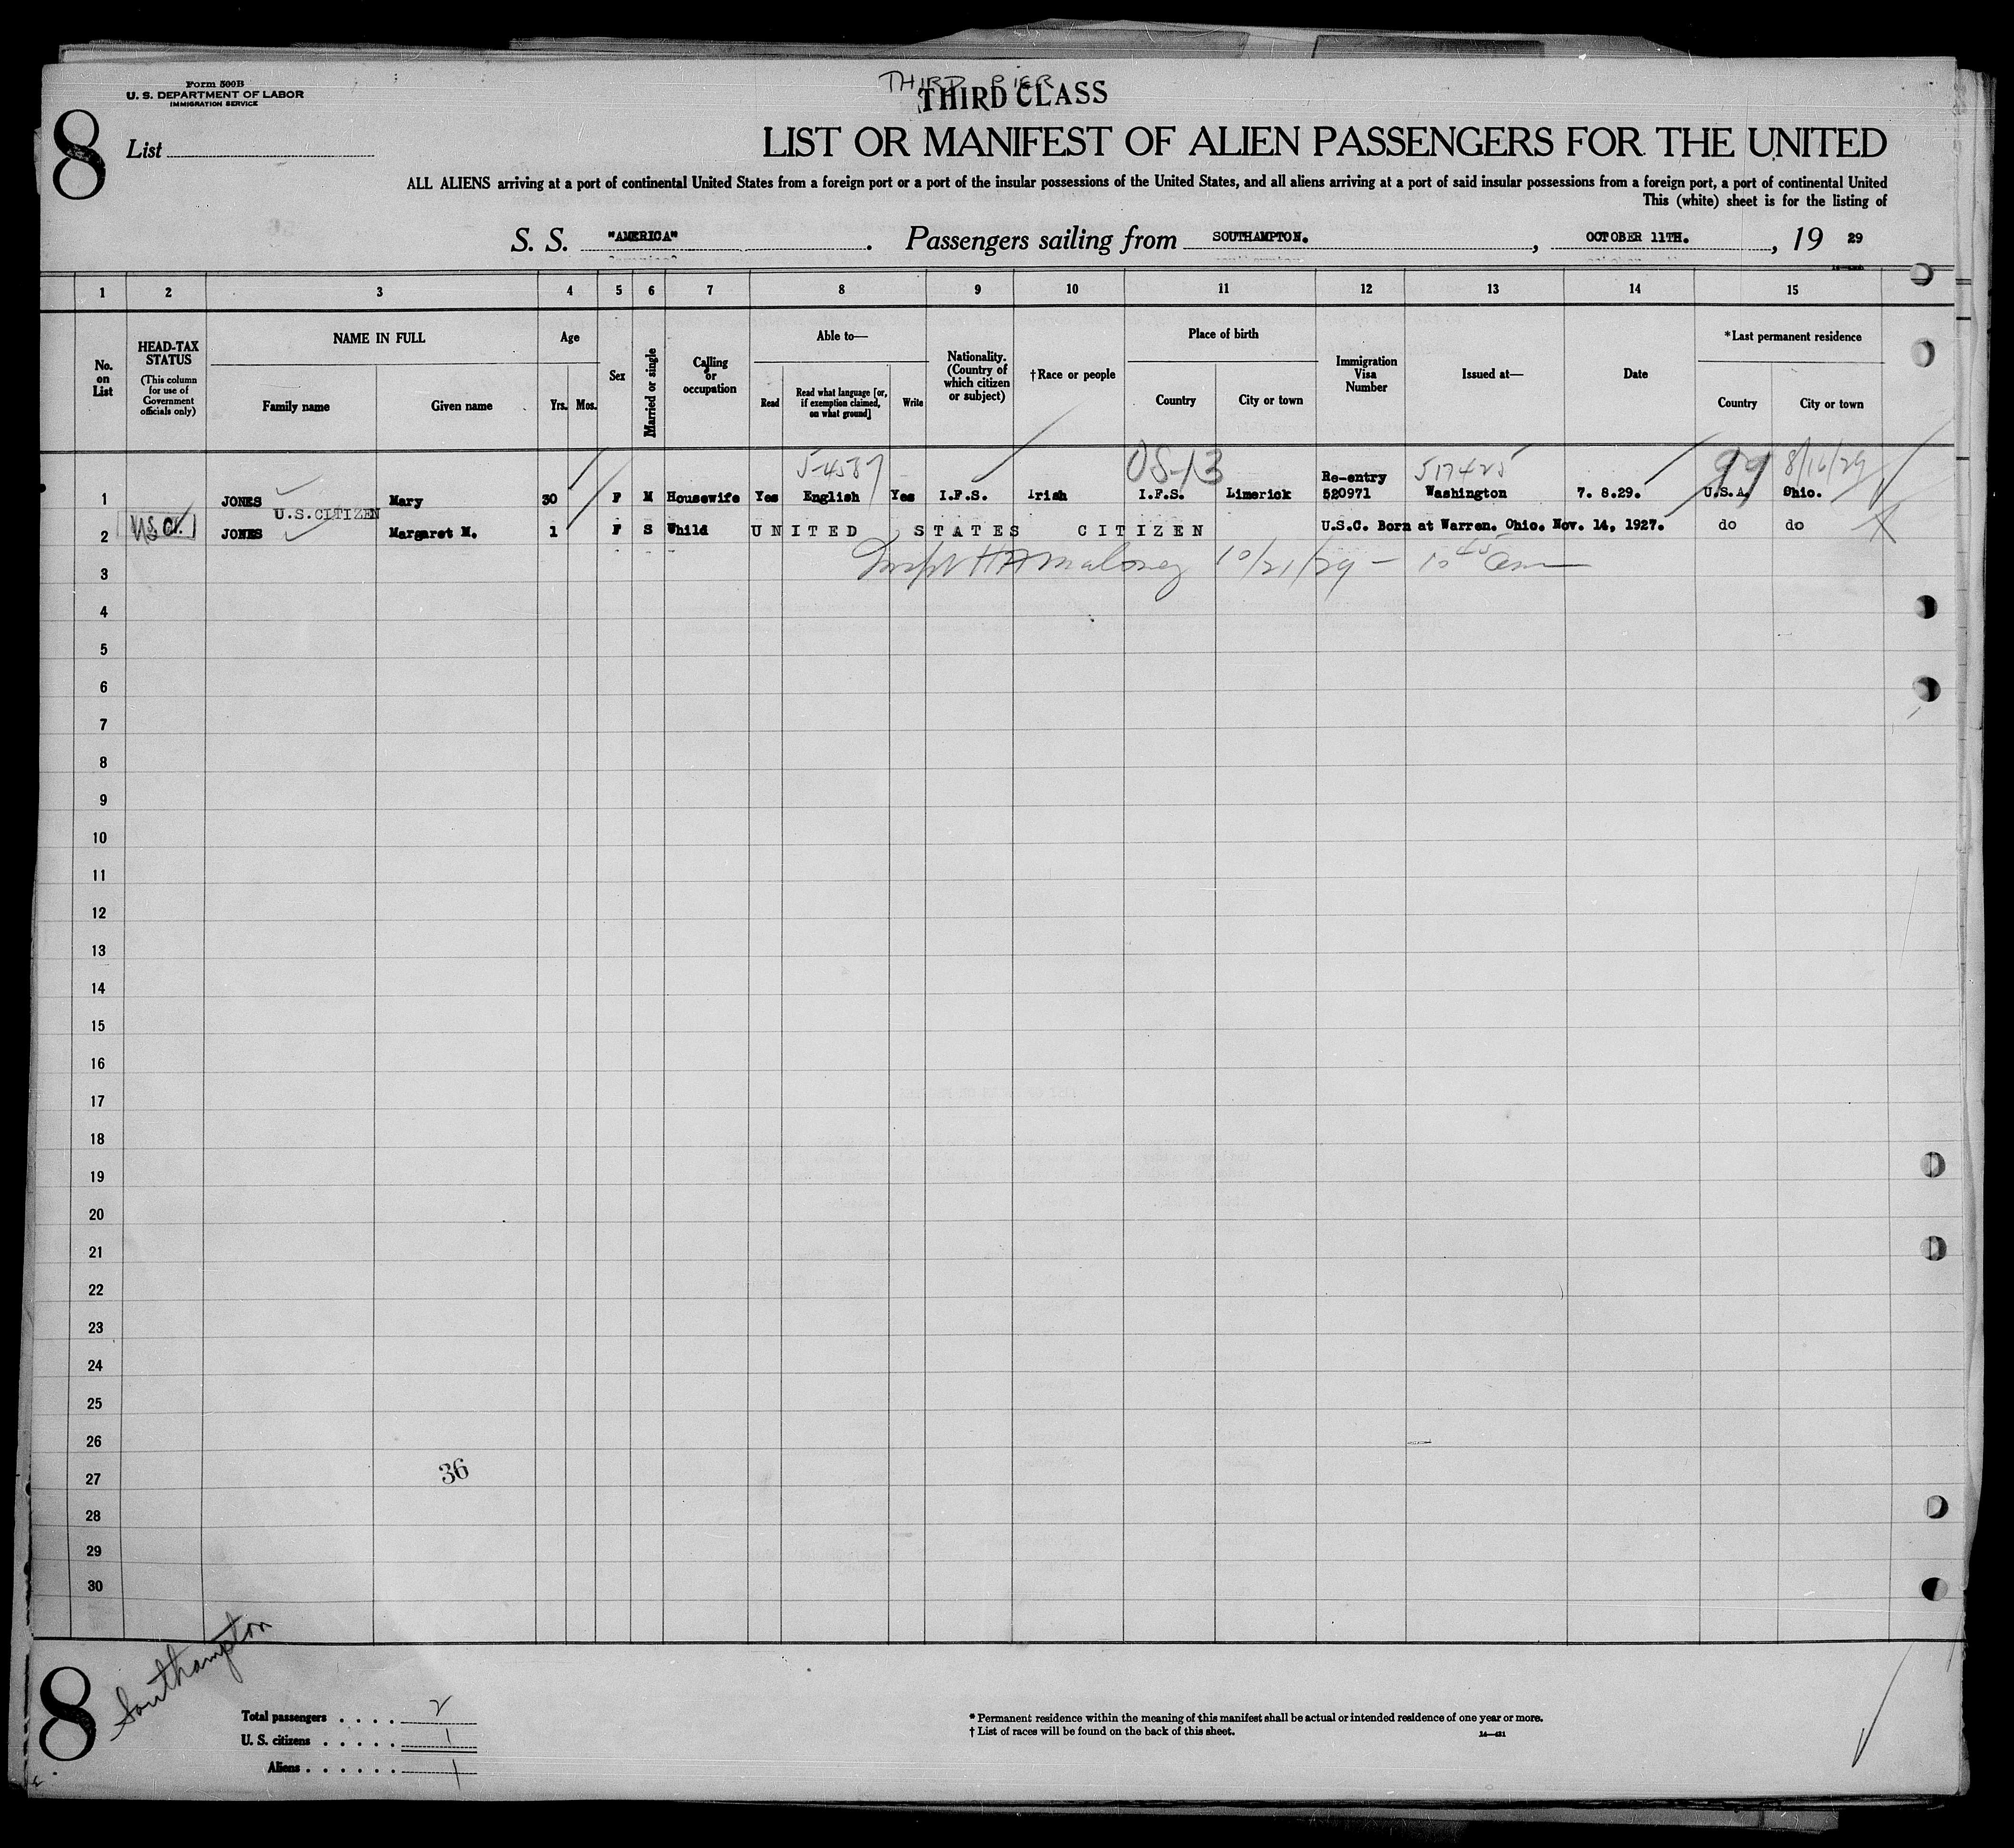 Form 500B
U. S. DEPARTMENT OF LABOR
IMMIGRATION SERVICE
THIRD PIER
THIRD CLASS
8
List
LIST OR MANIFEST OF ALIEN PASSENGERS FOR THE UNITED
ALL ALIENS arriving at a port of continental United States from a foreign port or a port of the insular possessions of the United States, and all aliens arriving at a port of said insular possessions from a foreign port, a port of continental United
This (white) sheet is for the listing of
S. S. "AMERICA" . Passengers sailing from SOUTHAMPTON. , OCTOBER 11TH. , 19 29
1 2 3 4 5 6 7 8 9 10 11 12 13 14 15
No. on List
HEAD-TAX STATUS
(This column for use of Government officials only)
NAME IN FULL
Family name Given name
Age
Yrs. Mos.
Sex
Married or single
Calling or occupation
Able to—
Read Read what language [or, if exemption claimed, on what ground] Write
Nationality. (Country of which citizen or subject)
†Race or people
Place of birth
Country City or town
Immigration Visa Number
Issued at—
Date
*Last permanent residence
Country City or town
54587 OS-13 Re-entry 517425 99 8/16/29
1 JONES Mary 30 F M Housewife Yes English Yes I.F.S. Irish I.F.S. Limerick 520971 Washington 7. 8.29. U.S.A. Ohio.
U.S.CITIZEN
2 U.S.C. JONES Margaret M. 1 F S Child UNITED STATES CITIZEN U.S.C. Born at Warren. Ohio. Nov. 14, 1927. do do
3 Maloney 10/21/29 – 10 45 am
4
5
6
7
8
9
10
11
12
13
14
15
16
17
18
19
20
21
22
23
24
25
26
27 36
28
29
30
8
Southampton
Total passengers . . . . 2
U. S. citizens . . . . . 1
Aliens . . . . . . 1
* Permanent residence within the meaning of this manifest shall be actual or intended residence of one year or more.
† List of races will be found on the back of this sheet.
14—431